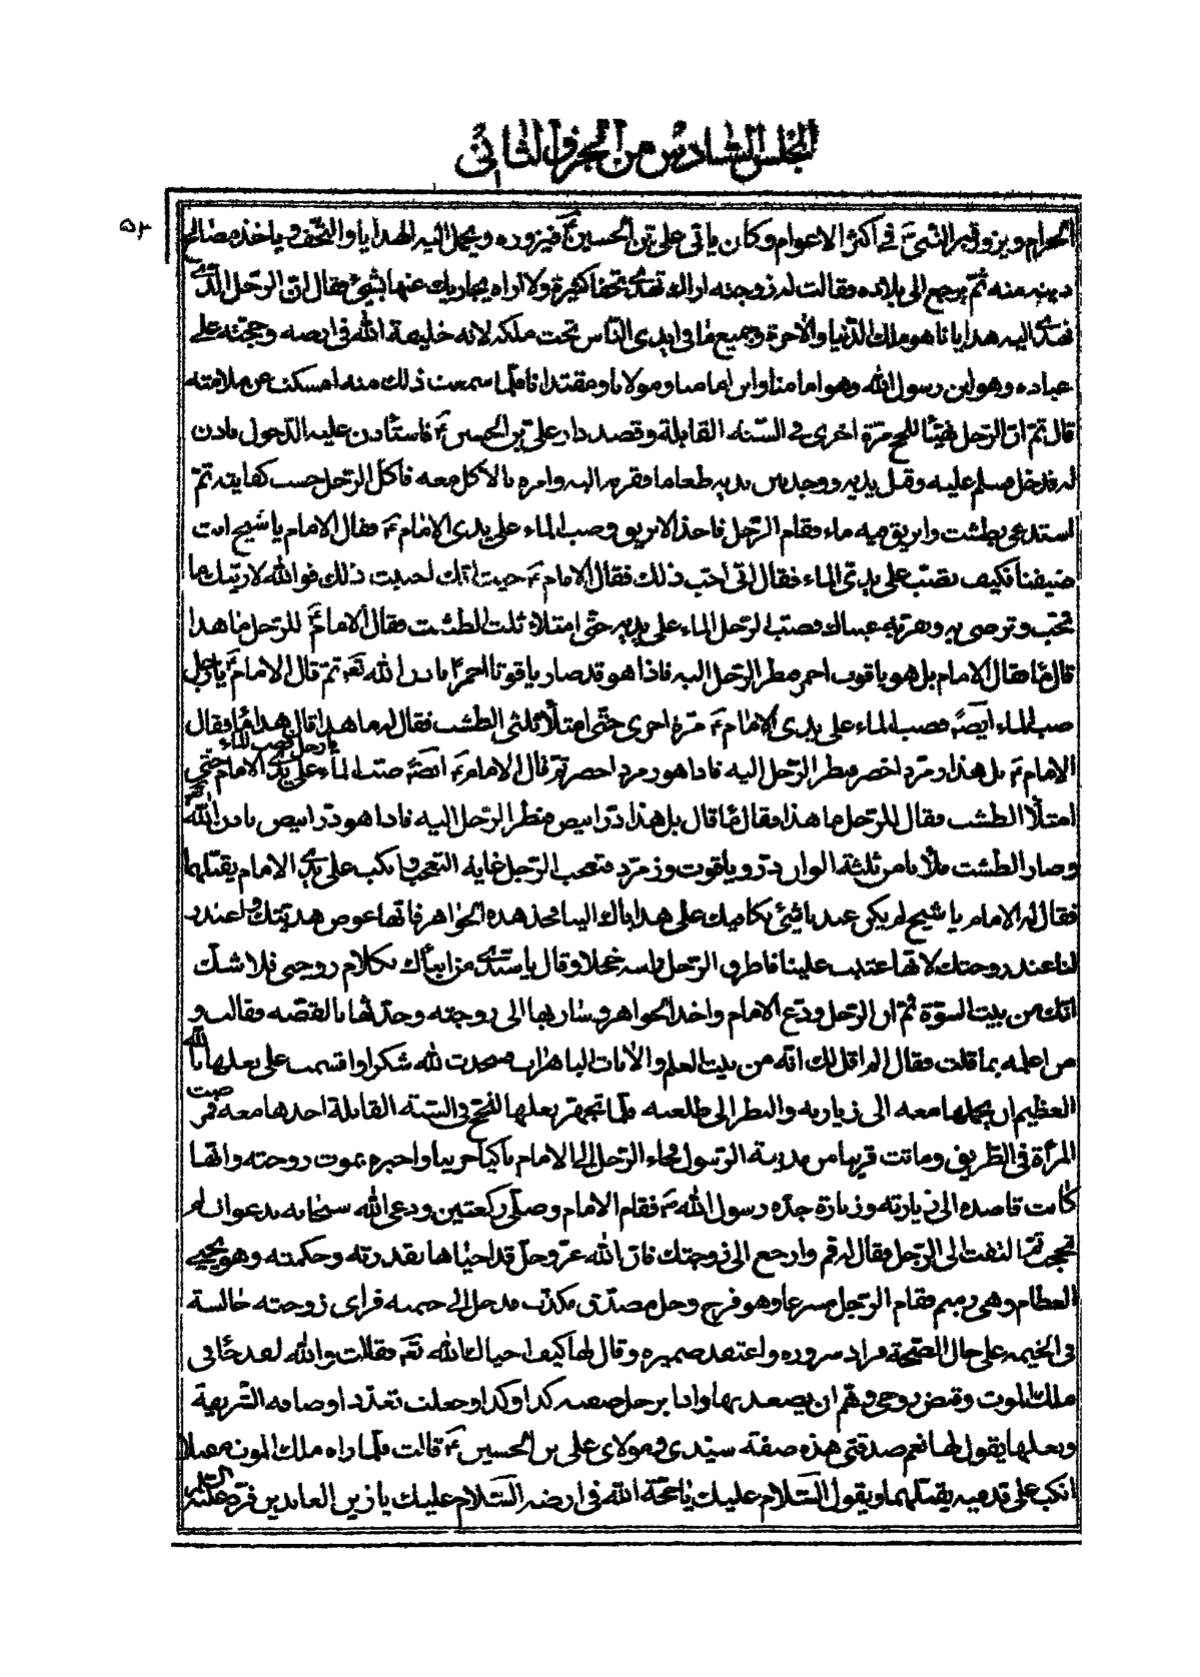 المجلس السادس من الجزء الثاني
٥٣
الحرام ويزور قبر النبي ص في اكثر الاعوام وكان ياتي علي بن الحسين ع فيزوره ويحمل اليه الهدايا والتحف وياخذ مصالح
دينه منه ثم يرجع الى بلاده فقالت له زوجته اراك تهدي تحفا كثيرة ولا اراه يجازيك عنها بشيئ فقال ان الرجل الذي
نهدي اليه هدايانا هو ملك الدنيا والآخرة وجميع ما في ايدي الناس تحت ملكه لانه خليفة الله في ارضه وحجته على
عباده وهو ابن رسول الله وهو امامنا وابن امامنا ومولانا ومقتدانا فلما سمعت ذلك منه امسكت عن ملامته
قال ثم ان الرجل تهيئا للحج مرة اخرى في السنة القابلة وقصد دار علي بن الحسين ع فاستأذن عليه الدخول فاذن
له فدخل فسلم عليه وقبل يديه ووجد بين يديه طعاما فقربه اليه وامره بالاكل معه فاكل الرجل حسب كفايته ثم
استدعى بطشت وابريق فيه ماء فقام الرجل فاخذ الابريق وصب الماء على يدي الامام ع فقال الامام يا شيخ انت
ضيفنا فكيف تصب على يدي الماء فقال اني احب ذلك فقال الامام ع حيث انك احببت ذلك فوالله لاريتك ما
تحب وترضى به وتقر به عيناك فصب الرجل الماء على يديه حتى امتلأ ثلث الطشت فقال الامام ع للرجل ما هذا
قال ماء فقال الامام بل هو ياقوت احمر فنظر الرجل اليه فاذا هو قد صار ياقوتا احمر باذن الله تعـ ثم قال الامام ع يا رجل
صب الماء ايضا فصب الماء على يدي الامام ع مرة اخرى حتى امتلأ ثلثي الطشت فقال له ما هذا قال هذا ماء فقال
الامام ع بل هذا زمرد اخضر فنظر الرجل اليه فاذا هو زمرد اخضر ثم قال الامام ع ايضا صب الماء يا رجل فصب الماء على يدي الامام حتى
امتلأ الطشت فقال للرجل ما هذا فقال ماء قال بل هذا در ابيض فنظر الرجل اليه فاذا هو در ابيض باذن الله تعـ
وصار الطشت ملآنا من ثلثة الوان در وياقوت وزمرد فتعجب الرجل غاية التعجب وانكب على يدي الامام يقبلها
فقال له الامام يا شيخ لم يكن عندنا شيئ نكافيك على هداياك الينا فخذ هذه الجواهر فانها عوض هديتك واعتذر
لنا عند زوجتك لانها عتبت علينا فاطرق الرجل راسه خجلا وقال يا سيدي من انبأك بكلام زوجتي فلا شك
انك من بيت النبوة ثم ان الرجل ودع الامام واخذ الجواهر وسار بها الى زوجته وحدثها بالقصة فقالت و
من اعلمه بما قلت فقال الم اقل لك انه من بيت العلم والآيات الباهرات فسجدت لله شكرا واقسمت على بعلها بالله
العظيم ان يحملها معه الى زيارته والنظر الى طلعته فلما تجهز بعلها للحج في السنة القابلة اخذها معه فمرضت
المرأة في الطريق وماتت قريبا من مدينة الرسول فجاء الرجل الى الامام باكيا حزينا واخبره بموت زوجته وانها
كانت قاصدة الى زيارته وزيارة جده رسول الله ص فقام الامام وصلى ركعتين ودعى الله سبحانه بدعوات لم
تحجب ثم التفت الى الرجل فقال له قم وارجع الى زوجتك فان الله عز وجل قد احياها بقدرته وحكمته وهو يحيي
العظام وهي رميم فقام الرجل مسرعا وهو فرح وجل مصدق مكذب فدخل الى خيمته فراى زوجته جالسة
في الخيمة على حال الصحة فزاد سروره واعتقد ضميره وقال لها كيف احياك الله تعـ فقالت والله لقد جائني
ملك الموت وقبض روحي وهم ان يصعد بها واذا برجل صفته كذا وكذا وجعلت تعدد اوصافه الشريفة
وبعلها يقول لها نعم صدقتي هذه صفة سيدي ومولاي علي بن الحسين ع قالت فلما راه ملك الموت مقبلا
انكب على قدميه يقبلهما ويقول السلام عليك يا حجة الله في ارضه السلام عليك يا زين العابدين فرد عليه السلام